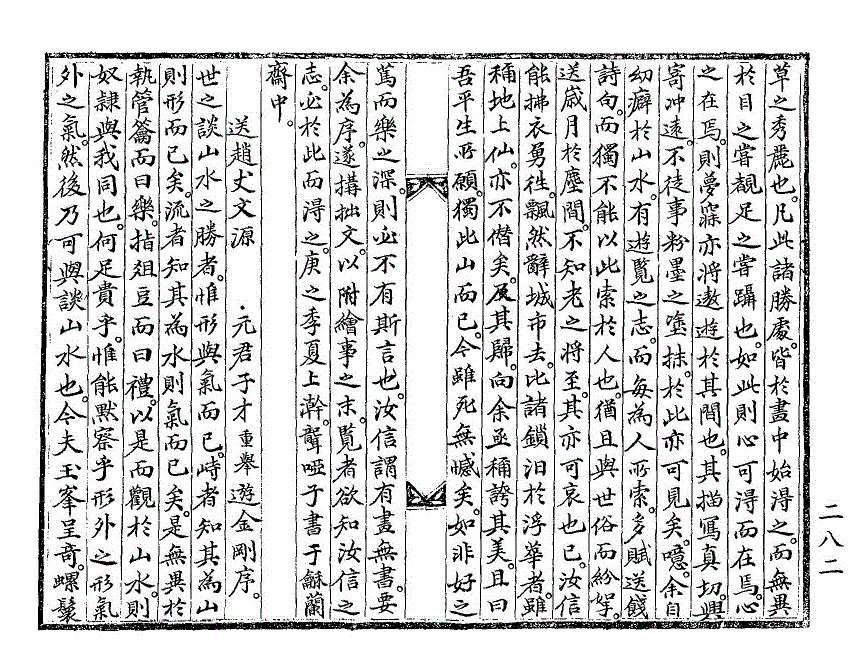 草之秀麗也。凡此諸勝處。皆於畫中始得之。而無異
於目之嘗覩足之嘗躡也。如此則心可得而在焉。心
之在焉。則夢寐亦將遨遊於其間也。其描寫真切。興
寄冲遠。不徒事粉墨之塗抹。於此亦可見矣。噫。余自
幼癖於山水。有遊覽之志。而每為人所索。多賦送餞
詩句。而獨不能以此索於人也。猶且與世俗而紛挐。
送歲月於塵間。不知老之將至。其亦可哀也已。汝信
能拂衣勇徃。飄然辭城市去。比諸鎖汨於浮華者。雖
稱地上仙。亦不僭矣。及其歸。向余亟稱誇其美。且曰
吾平生所願。獨此山而已。今雖死無憾矣。如非好之
篤而樂之深。則必不有斯言也。汝信謂有畫無書。要
余為序。遂搆拙文。以附繪事之末。覽者欲知汝信之
志。必於此而淂之。庚之季夏上澣。聾啞子書于龢蘭
齋中。
送趙丈文源・元君子才重舉遊金剛序。
世之談山水之勝者。惟形與氣而已。峙者知其為山
則形而已矣。流者知其為水則氣而已矣。是無異於
執管籥而曰樂。指俎豆而曰禮。以是而觀於山水。則
奴隷與我同也。何足貴乎。惟能默察乎形外之形氣
外之氣。然後乃可與談山水也。今夫玉峯呈奇。螺鬟
二八二